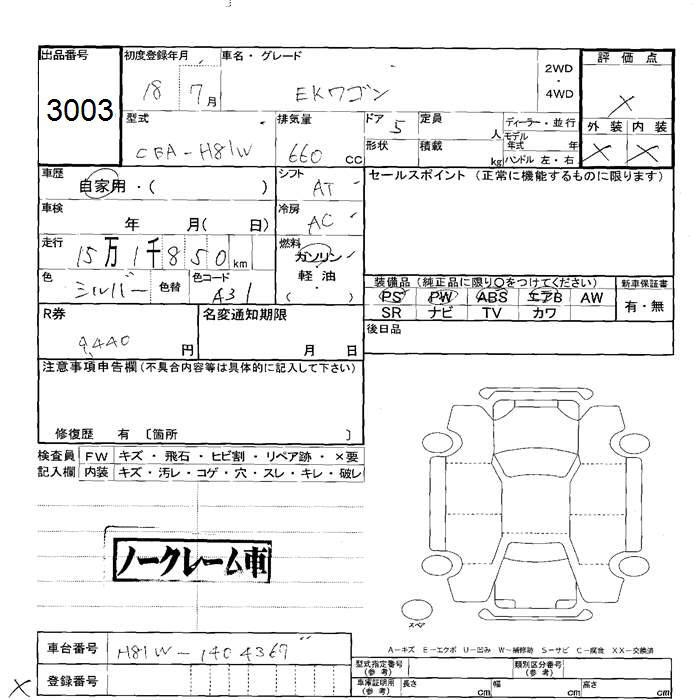 出品番号 初度登録年月 車名・グレード 2WD・4WD 評価点
3003 18 7月 EKワゴン X
型式 排気量 ドア 定員 ディーラー・並行 外装 内装
CBA-H81W 660 CC 5 人 モデル年式 年 X X
形状 積載 kg ハンドル 左・右
車歴 シフト セールスポイント (正常に機能するものに限ります)
自家用・( ) AT
車検 年 月( 日) 冷房 AC
走行 燃料
15万1千850km ガソリン・軽油
色 シルバー 色替 色コード A31 ( )
装備品 (純正品に限り○をつけてください) 新車保証書
PS PW ABS エアB AW 有・無
SR ナビ TV カワ
R券 名変通知期限 後日品
9,440 円 月 日
注意事項申告欄(不具合内容等は具体的に記入して下さい)
修復歴 有 〔箇所 〕
検査員 FW キズ・飛石・ヒビ割・リペア跡・×要
記入欄 内装 キズ・汚レ・コゲ・穴・スレ・キレ・破レ
ノークレーム車
スペア
車台番号 H81W-1404367
A-キズ E-エクボ U-凹み W-補修跡 S-サビ C-腐食 XX-交換済
X 登録番号
型式指定番号(参考) 類別区分番号(参考)
車庫証明用(参考) 長さ cm 幅 cm 高さ cm